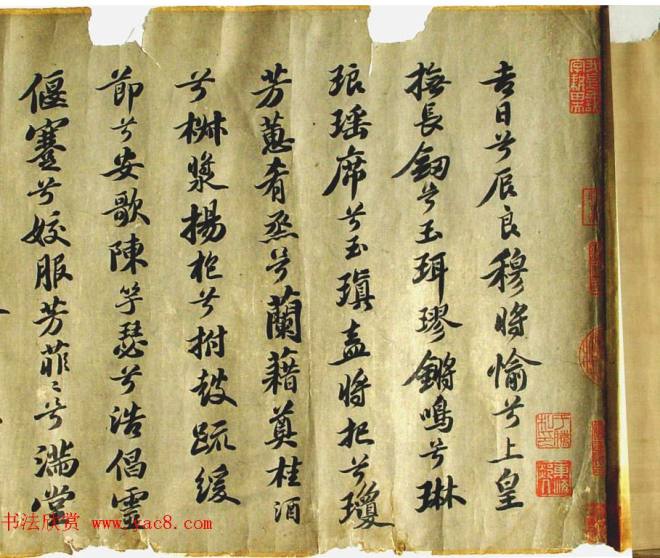 吉日兮辰良穆將愉兮上皇
撫長釼兮玉珥璆鏘鳴兮琳
琅瑶席兮玉瑱盍將把兮瓊
芳蕙肴烝兮蘭藉奠桂酒
兮椒漿揚枹兮拊鼓疏緩
節兮安歌陳竽瑟兮浩倡靈
偃蹇兮姣服芳菲〻兮滿堂
书法欣赏 www.yac8.com